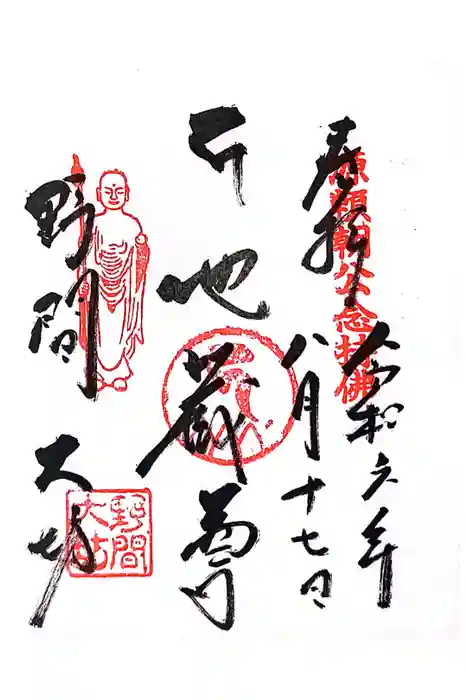 奉拝
源頼朝公念持佛
令和六年
八月十七日
地蔵尊
野間
大坊
野間
大坊